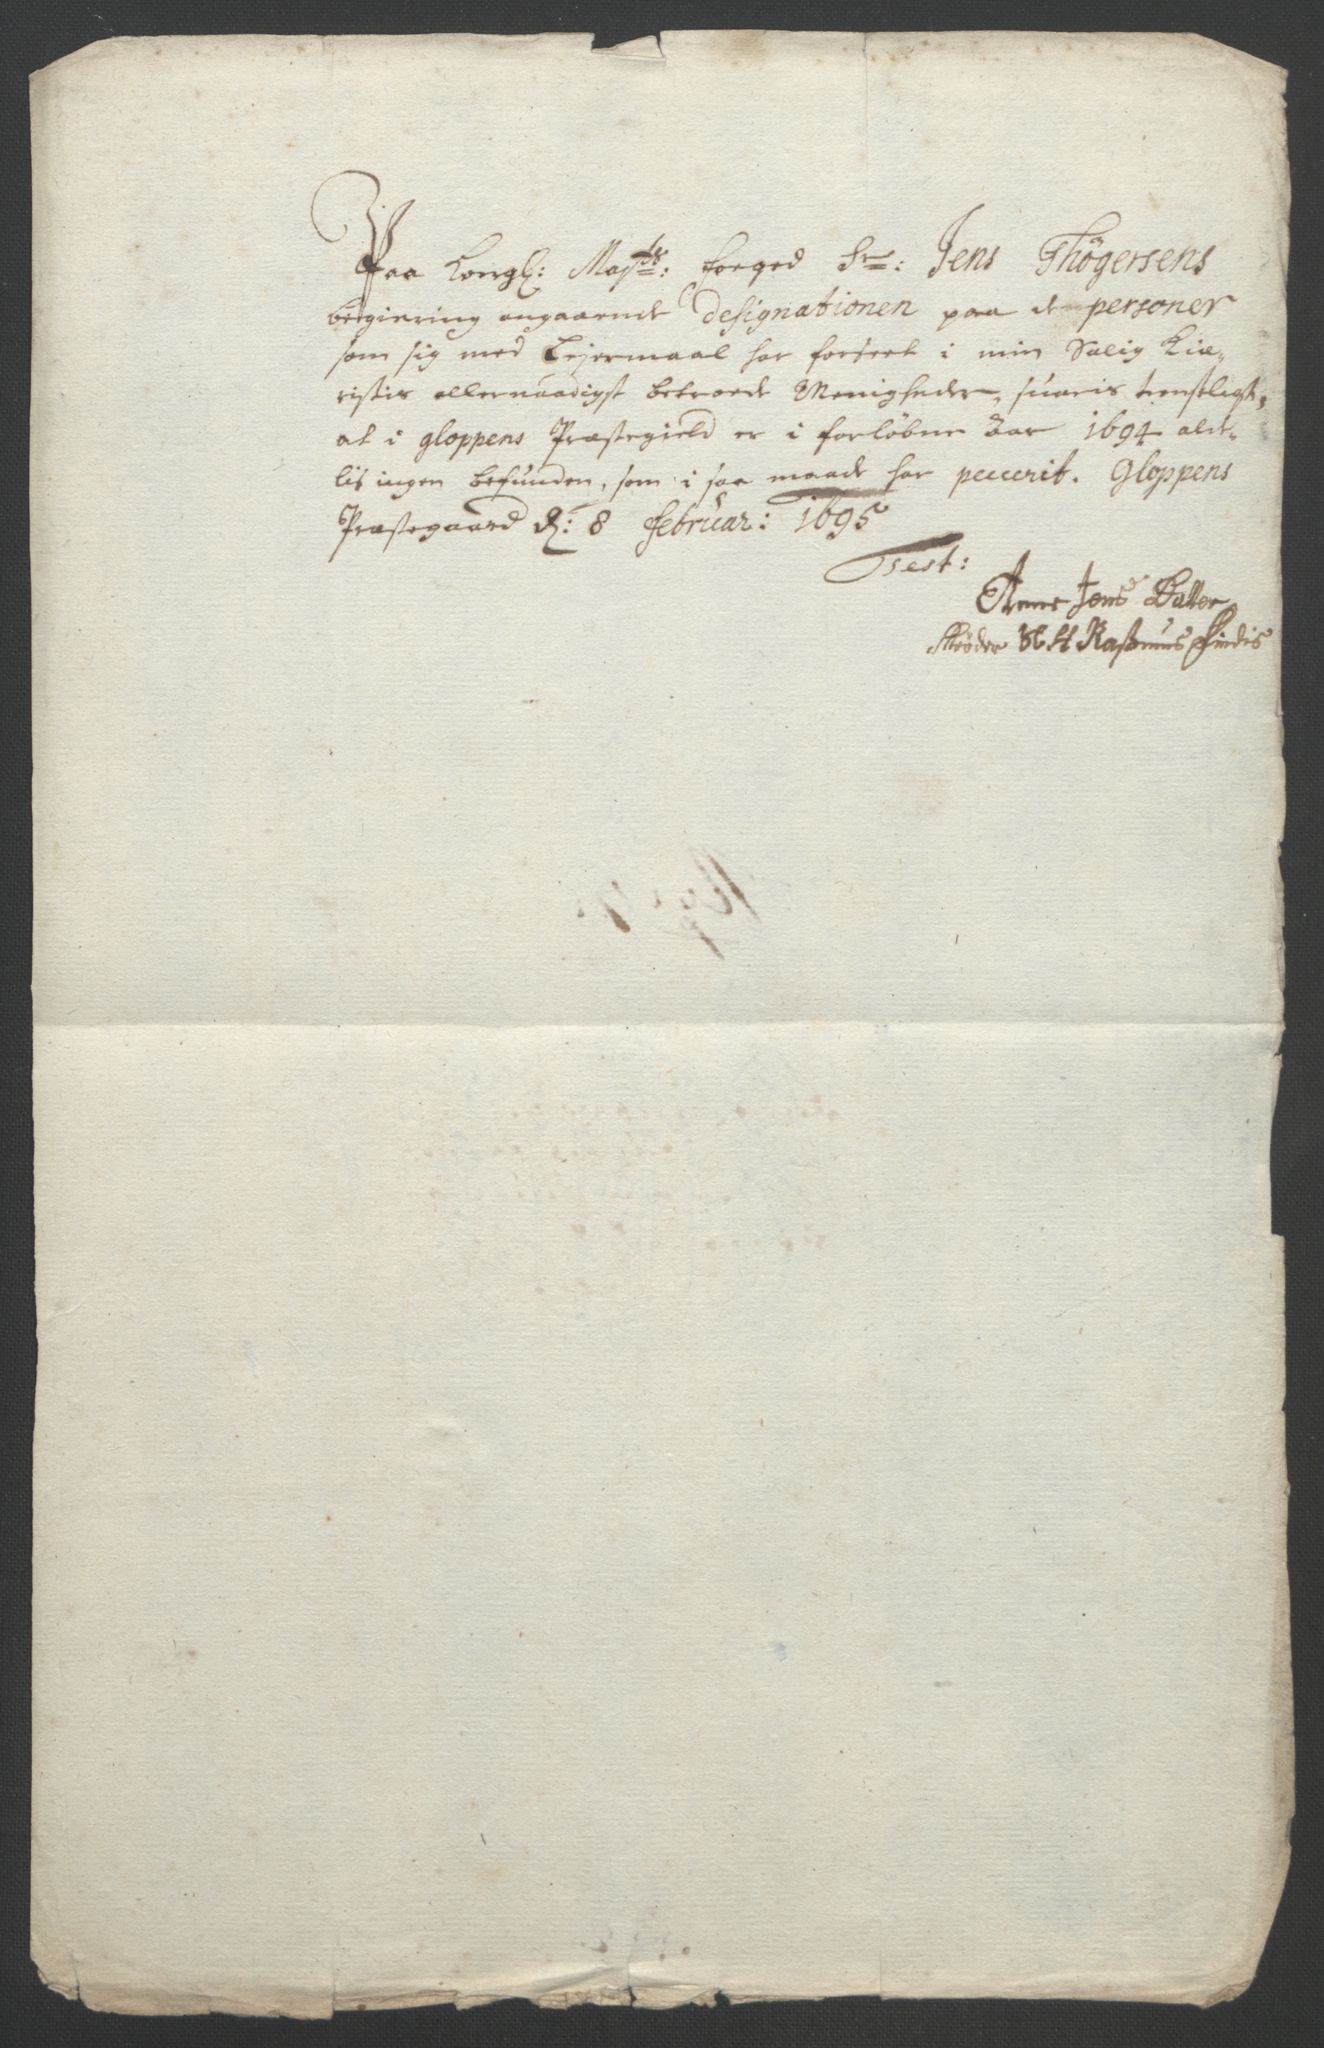 Paa Kongl: Maÿts: foeged Sr: Jens Thögersens
begiering angaaende designationen paa de personer
som sig med Lejermaal har forseet i min Salig Kiæ-
ristis allernaadigst betroede Menigheder, suaris tienstligst,
at i gloppens Præstegield er i forløbne Aar 1694 alde-
lis ingen befunden, som i saa maade har peccerit. Gloppens
Præstegaard d: 8 februar: 1695
Test:
Anne Jens Datter
Rasmus Findis